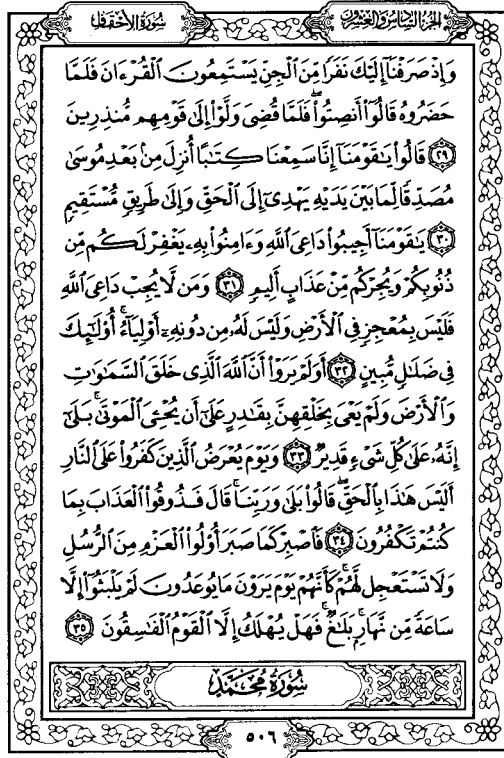 الجزء السادس والعشرون
سورة الأحقاف
وَإِذْ صَرَفْنَآ إِلَيْكَ نَفَرًا مِّنَ ٱلْجِنِّ يَسْتَمِعُونَ ٱلْقُرْءَانَ فَلَمَّا
حَضَرُوهُ قَالُوٓا۟ أَنصِتُوا۟ۖ فَلَمَّا قُضِىَ وَلَّوْا۟ إِلَىٰ قَوْمِهِم مُّنذِرِينَ
٢٩ قَالُوا۟ يَٰقَوْمَنَآ إِنَّا سَمِعْنَا كِتَٰبًا أُنزِلَ مِنۢ بَعْدِ مُوسَىٰ
مُصَدِّقًا لِّمَا بَيْنَ يَدَيْهِ يَهْدِىٓ إِلَى ٱلْحَقِّ وَإِلَىٰ طَرِيقٍ مُّسْتَقِيمٍ
٣٠ يَٰقَوْمَنَآ أَجِيبُوا۟ دَاعِىَ ٱللَّهِ وَءَامِنُوا۟ بِهِۦ يَغْفِرْ لَكُم مِّن
ذُنُوبِكُمْ وَيُجِرْكُم مِّنْ عَذَابٍ أَلِيمٍ ٣١ وَمَن لَّا يُجِبْ دَاعِىَ ٱللَّهِ
فَلَيْسَ بِمُعْجِزٍ فِى ٱلْأَرْضِ وَلَيْسَ لَهُۥ مِن دُونِهِۦٓ أَوْلِيَآءُۚ أُو۟لَٰٓئِكَ
فِى ضَلَٰلٍ مُّبِينٍ ٣٢ أَوَلَمْ يَرَوْا۟ أَنَّ ٱللَّهَ ٱلَّذِى خَلَقَ ٱلسَّمَٰوَٰتِ
وَٱلْأَرْضَ وَلَمْ يَعْىَ بِخَلْقِهِنَّ بِقَٰدِرٍ عَلَىٰٓ أَن يُحْۦِىَ ٱلْمَوْتَىٰۚ بَلَىٰٓ
إِنَّهُۥ عَلَىٰ كُلِّ شَىْءٍ قَدِيرٌ ٣٣ وَيَوْمَ يُعْرَضُ ٱلَّذِينَ كَفَرُوا۟ عَلَى ٱلنَّارِ
أَلَيْسَ هَٰذَا بِٱلْحَقِّۖ قَالُوا۟ بَلَىٰ وَرَبِّنَاۚ قَالَ فَذُوقُوا۟ ٱلْعَذَابَ بِمَا
كُنتُمْ تَكْفُرُونَ ٣٤ فَٱصْبِرْ كَمَا صَبَرَ أُو۟لُوا۟ ٱلْعَزْمِ مِنَ ٱلرُّسُلِ
وَلَا تَسْتَعْجِل لَّهُمْۚ كَأَنَّهُمْ يَوْمَ يَرَوْنَ مَا يُوعَدُونَ لَمْ يَلْبَثُوٓا۟ إِلَّا
سَاعَةً مِّن نَّهَارٍۭۚ بَلَٰغٌۚ فَهَلْ يُهْلَكُ إِلَّا ٱلْقَوْمُ ٱلْفَٰسِقُونَ ٣٥
سُورَةُ مُحَمَّدٍ
٥٠٦